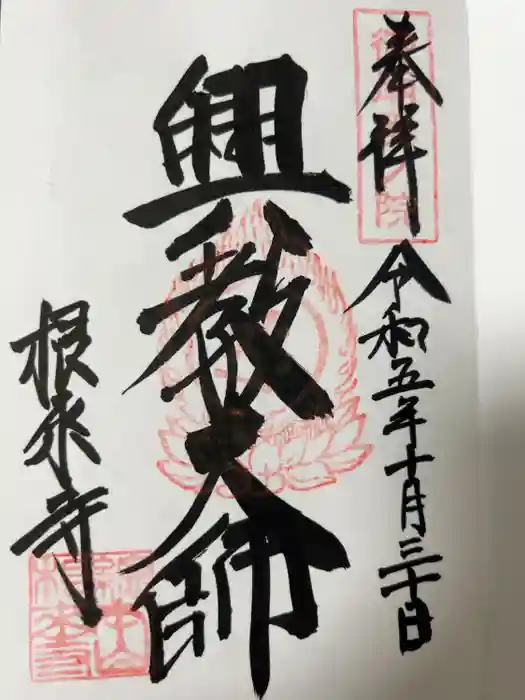 奉拝
令和五年十月三十日
興教大師
根来寺